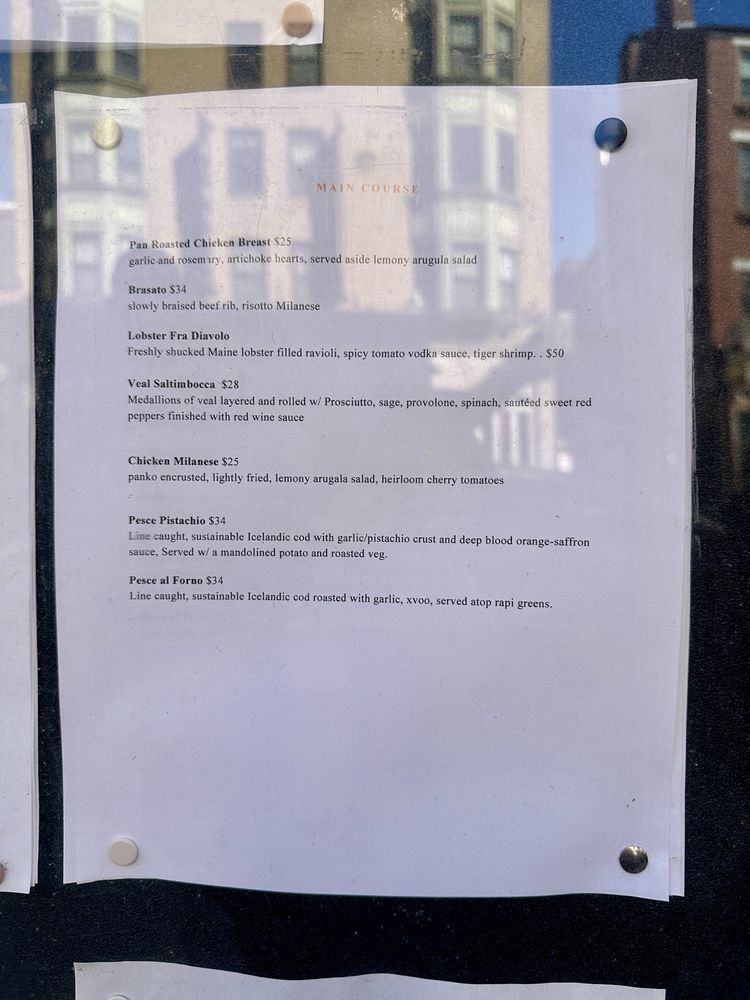 MAIN COURSE
Pan Roasted Chicken Breast $25
garlic and rosemary, artichoke hearts, served aside lemony arugula salad
Brasato $34
slowly braised beef rib, risotto Milanese
Lobster Fra Diavolo
Freshly shucked Maine lobster filled ravioli, spicy tomato vodka sauce, tiger shrimp. . $50
Veal Saltimbocca $28
Medallions of veal layered and rolled w/ Prosciutto, sage, provolone, spinach, sautéed sweet red
peppers finished with red wine sauce
Chicken Milanese $25
panko encrusted, lightly fried, lemony arugala salad, heirloom cherry tomatoes
Pesce Pistachio $34
Line caught, sustainable Icelandic cod with garlic/pistachio crust and deep blood orange-saffron
sauce, Served w/ a mandolined potato and roasted veg.
Pesce al Forno $34
Line caught, sustainable Icelandic cod roasted with garlic, xvoo, served atop rapi greens.